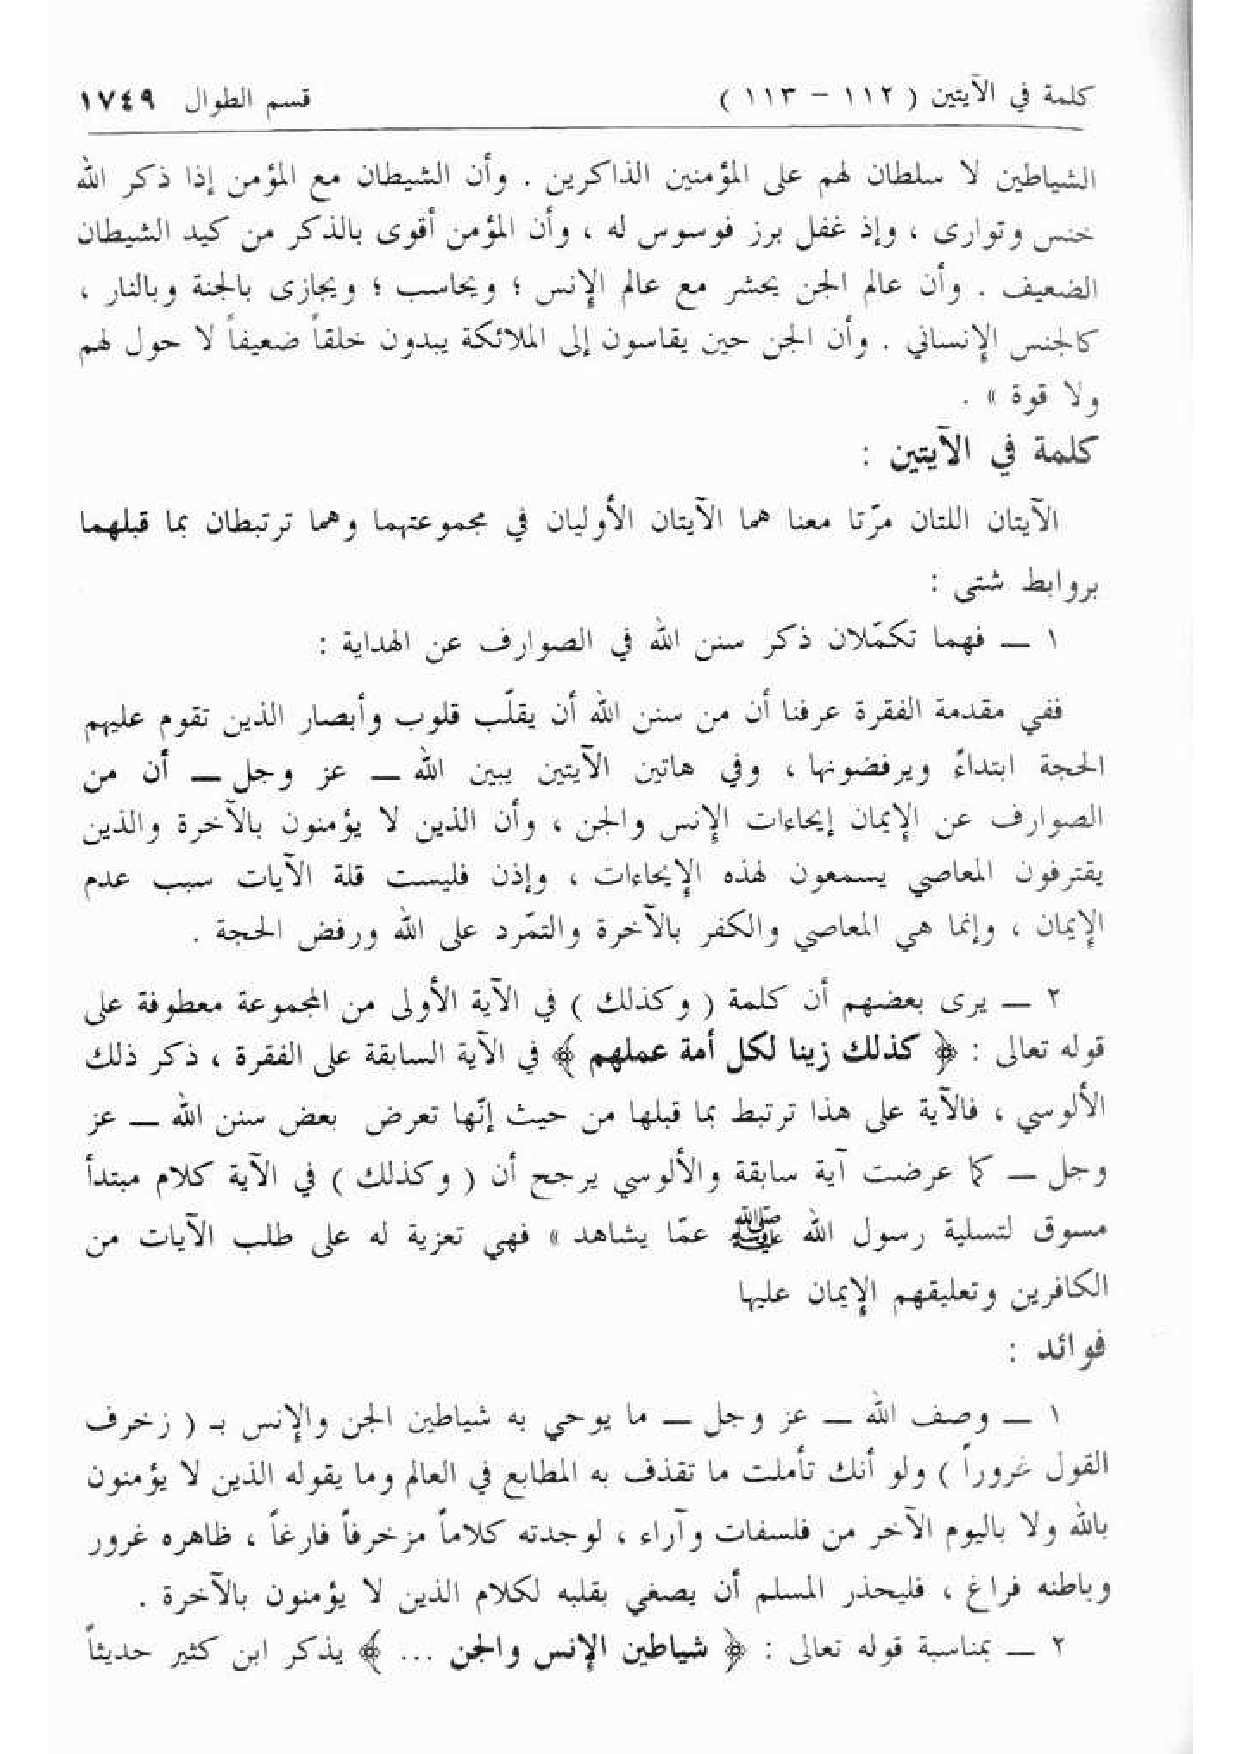 كلمة في الآيتين ( ١١٢ – ١١٣ ) قسم الطوال ١٧٤٩
الشياطين لا سلطان لهم على المؤمنين الذاكرين . وأن الشيطان مع المؤمن إذا ذكر الله
خنس وتوارى ، وإذ غفل برز فوسوس له ، وأن المؤمن أقوى بالذكر من كيد الشيطان
الضعيف . وأن عالم الجن يحشر مع عالم الإنس ؛ ويحاسب ؛ ويجازى بالجنة وبالنار ،
كالجنس الإنساني . وأن الجن حين يقاسون إلى الملائكة يبدون خلقاً ضعيفاً لا حول لهم
ولا قوة » .
كلمة في الآيتين :
الآيتان اللتان مرّتا معنا هما الآيتان الأوليان في مجموعتهما وهما ترتبطان بما قبلهما
بروابط شتى :
١ ــ فهما تكمّلان ذكر سنن الله في الصوارف عن الهداية :
ففي مقدمة الفقرة عرفنا أن من سنن الله أن يقلّب قلوب وأبصار الذين تقوم عليهم
الحجة ابتداءً ويرفضونها ، وفي هاتين الآيتين يبين الله ــ عز وجل ــ أن من
الصوارف عن الإيمان إيحاءات الإنس والجن ، وأن الذين لا يؤمنون بالآخرة والذين
يقترفون المعاصي يسمعون لهذه الإيحاءات ، وإذن فليست قلة الآيات سبب عدم
الإيمان ، وإنما هي المعاصي والكفر بالآخرة والتمّرد على الله ورفض الحجة .
٢ ــ يرى بعضهم أن كلمة ( وكذلك ) في الآية الأولى من المجموعة معطوفة على
قوله تعالى : ﴿ كذلك زينا لكل أمة عملهم ﴾ في الآية السابقة على الفقرة ، ذكر ذلك
الألوسي ، فالآية على هذا ترتبط بما قبلها من حيث إنّها تعرض بعض سنن الله ــ عز
وجل ــ كما عرضت آية سابقة والألوسي يرجح أن ( وكذلك ) في الآية كلام مبتدأ
مسوق لتسلية رسول الله ﷺ عمّا يشاهد » فهي تعزية له على طلب الآيات من
الكافرين وتعليقهم الإيمان عليها
فوائد :
١ ــ وصف الله ــ عز وجل ــ ما يوحي به شياطين الجن والإنس بـ ( زخرف
القول غروراً ) ولو أنك تأملت ما تقذف به المطابع في العالم وما يقوله الذين لا يؤمنون
بالله ولا باليوم الآخر من فلسفات وآراء ، لوجدته كلاماً مزخرفاً فارغاً ، ظاهره غرور
وباطنه فراغ ، فليحذر المسلم أن يصغي بقلبه لكلام الذين لا يؤمنون بالآخرة .
٢ ــ بمناسبة قوله تعالى : ﴿ شياطين الإنس والجن ... ﴾ يذكر ابن كثير حديثاً